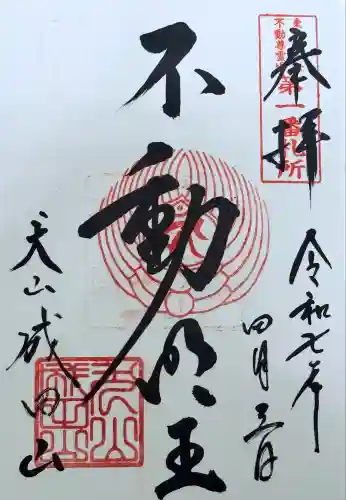 奉拝
東
不動尊霊
第一番札所
令和七年
四月五日
不動明王
犬山成田山